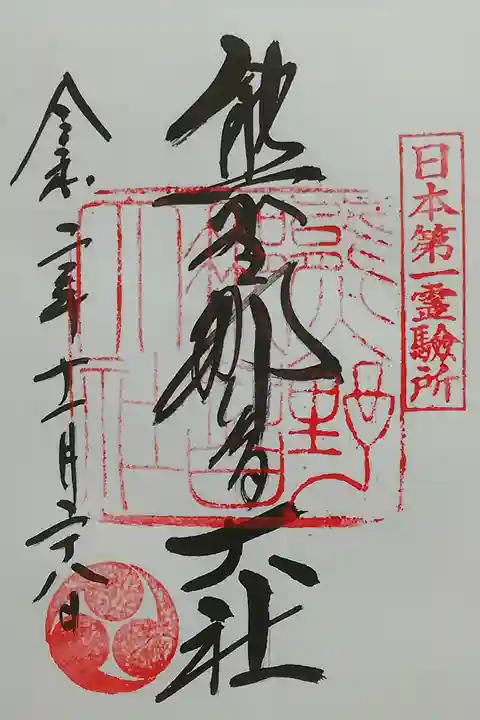 日本第一霊驗所
熊野那智大社
令和二年十一月二十八日